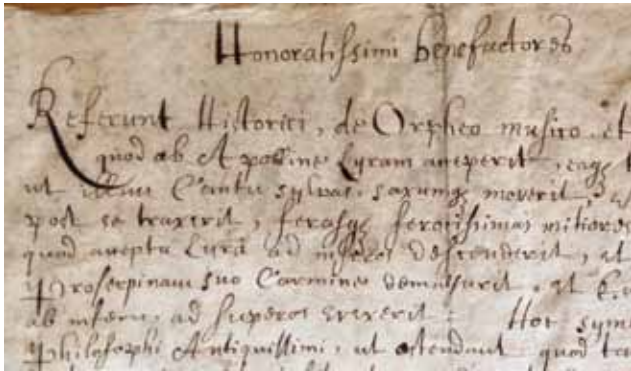 Honoratissimi benefactores
Referunt Historici, de Orpheo musico et
quod ab Apolline Lyram acceperit, eaqȝ t
ut illius Cantu sylvas, saxumqȝ moverit,
post se traxerit, ferasqȝ ferocissimas mitiores
quod accepta Lyrâ ad inferos descenderit, et
Proserpinam suo Carmine demulserit, et Eu
ab inferis, ad superos evexerit: Hoc sym
Philosophi Antiquissimi, ut ostendant quod tan